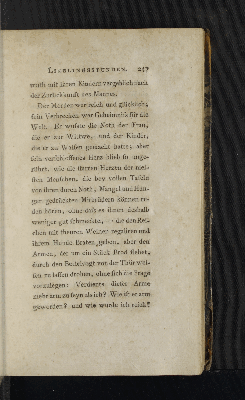 LIEBLINGSSTUNDEN. 247
muth mit ihren Kindern vergeblich nach
der Zurückkunft des Mannes.
Der Mörder war reich und glücklich,
sein Verbrechen war Geheimniß für die
Welt. Er wußte die Noth der Frau,
die er zur Wittwe, und der Kinder,
die er zu Waisen gemacht hatte; aber
sein verschloßenes Herz blieb so unge-
rührt, wie die harten Herzen der mei-
sten Menschen, die bey vollen Tafeln
von ihren durch Noth, Mangel und Hun-
ger gedrückten Mitbrüdern können re-
den hören, ohne daß es ihnen deshalb
weniger gut schmeckte, die den
chen mit theuren Weinen regaliren und
ihrem Hunde Braten geben, aber den
Armen, der um ein Stück Brod flehet,
durch den Bettelvogt vor der Thür wol-
len zu laßen drohen, ohne sich die Frage
vorzulegen: Verdiente dieser Arme
mehr arm zu seyn als ich? Wie ist er arm
geworden? und wie wurde ich reich?